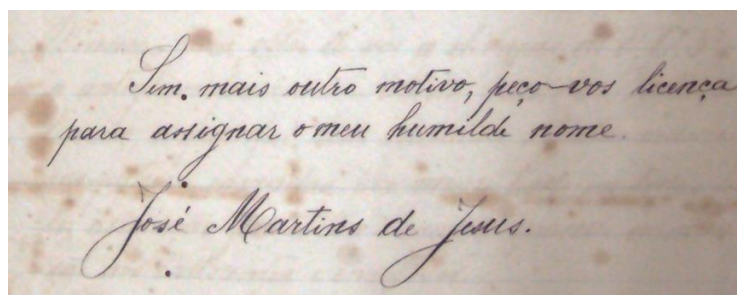 Sem mais outro motivo, peço-vos licença
para assignar o meu humilde nome.
José Martins de Jesus.